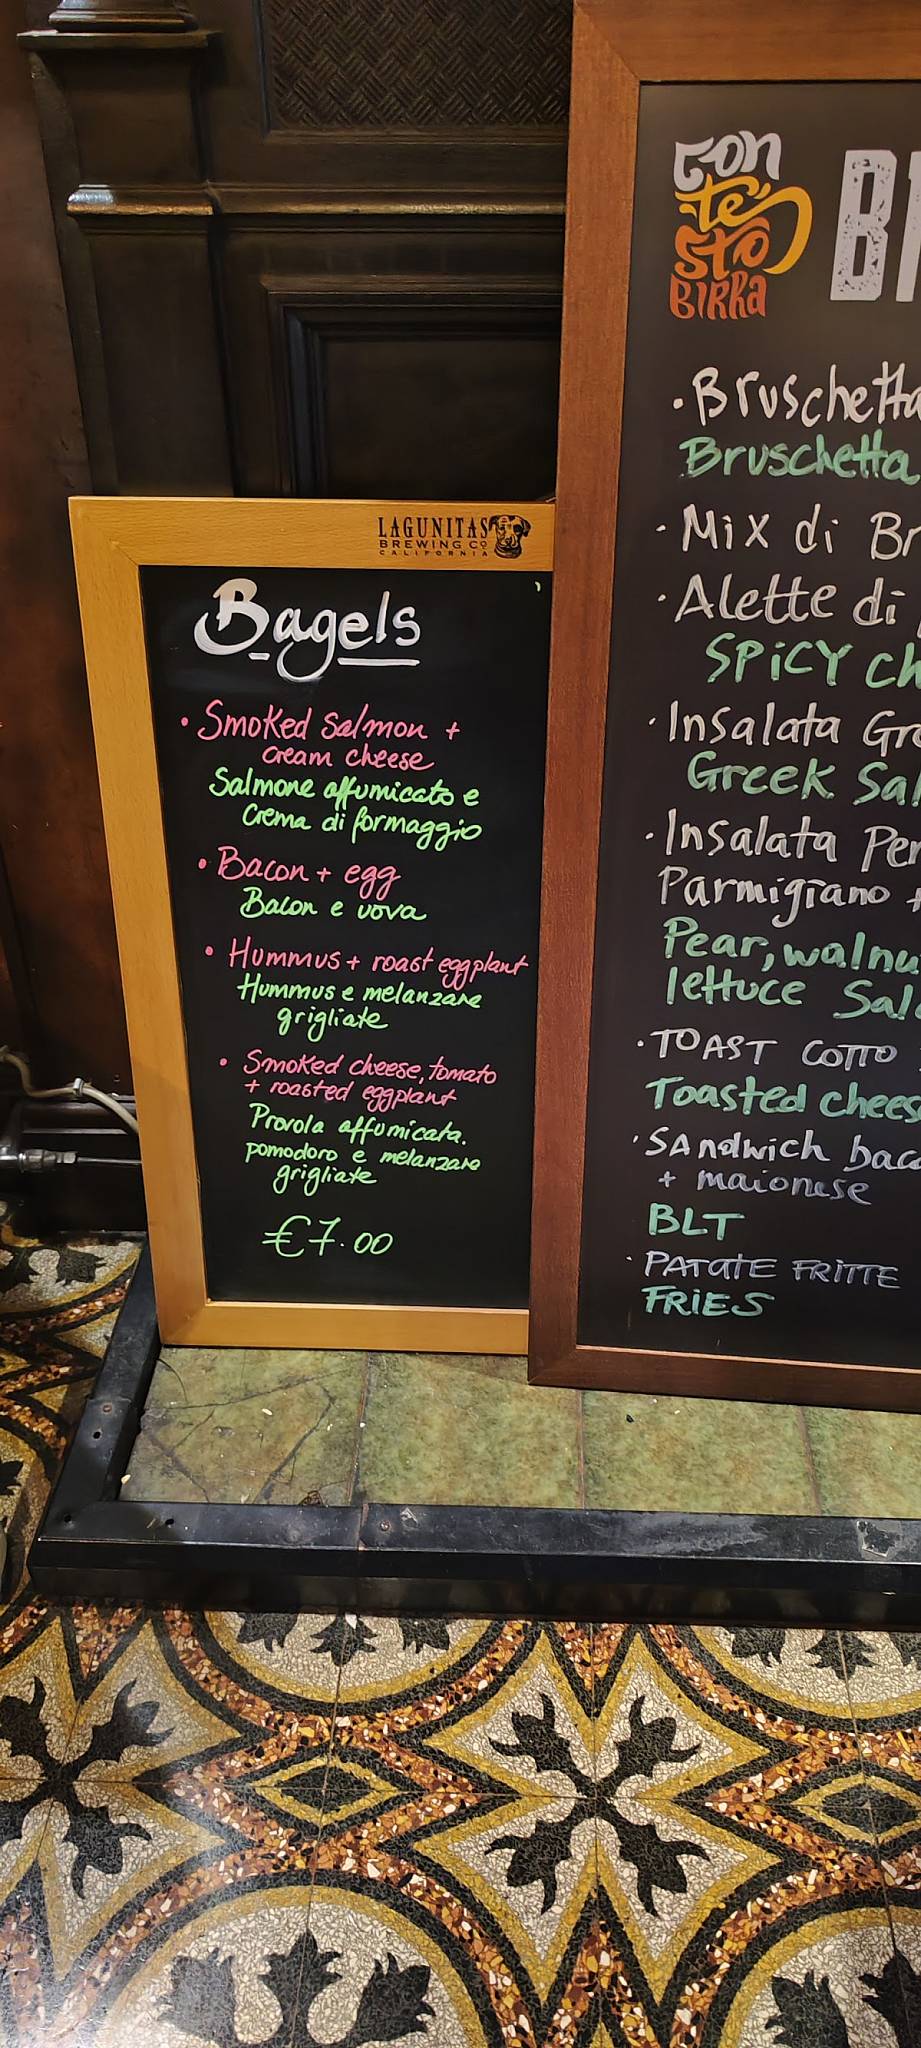 LAGUNITAS
BREWING CO
CALIFORNIA
Bagels
• Smoked salmon +
cream cheese
Salmone affumicato e
Crema di formaggio
• Bacon + egg
Bacon e uova
• Hummus + roast eggplant
Hummus e melanzane
grigliate
• Smoked cheese, tomato
+ roasted eggplant
Provola affumicata.
pomodoro e melanzane
grigliate
€7.00
Con
te
sto
BIRRa
• Bruschetta
Bruschetta
• Mix di
• Alette di
SPiCY
• Insalata
Greek
• Insalata
Parmigiano +
Pear,
lettuce
• TOAST COTTO
Toasted
• SAndwich
+ maionese
BLT
• PATATE FRITTE
FRiES